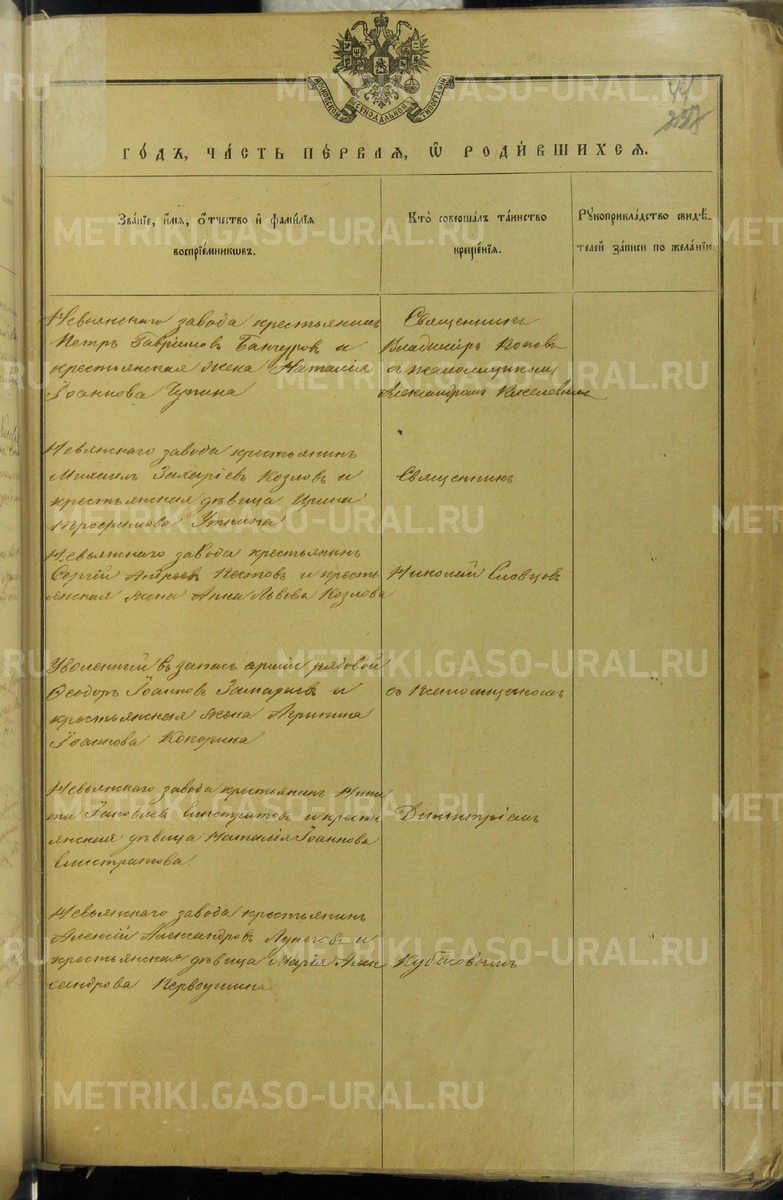 МОСКОВСКОЙ СѴНОДАЛЬНОЙ ТИПОГРАФІИ
44
ГОДЪ, ЧАСТЬ ПЕРВАЯ, Ѡ РОДИВШИХСѦ.
Званіе, имя, отчество и фамилія
воспріемниковъ.
Кто совершалъ таинство
крещенія.
Рꙋкоприкладство свидѣ-
телей записи по желанію.
Невьянскаго завода крестьянинъ
Петръ Гавріиловъ Банчуровъ и
крестьянская жена Наталія
Іоаннова Чупина
Священникъ
Владиміръ Поповъ
съ псаломщикомъ
Александромъ Киселевымъ
Невьянскаго завода крестьянинъ
Михаилъ Захаріевъ Козловъ и
крестьянская дѣвица Ирина
Уткина
Священникъ
Невьянскаго завода крестьянинъ
Сергій Андреевъ Пестовъ и кресть
янская жена Анна Львова Козлова
Николай Словцовъ
Уволенный въ запасъ арміи рядовой
Ѳеодоръ Іоанновъ Замараевъ и
крестьянская жена Агрипина
Іоаннова Кокорина
съ псаломщикомъ
Невьянскаго завода крестьянинъ Ники
та Іаковлевъ Елистратовъ и кресть
янская дѣвица Наталія Іоаннова
Елистратова
Димитріемъ
Невьянскаго завода крестьянинъ
Алексій Александровъ Лунеговъ и
крестьянская дѣвица Марія Алек
сандрова Первоушина
Кубасовымъ
METRIKI.GASO-URAL.RU